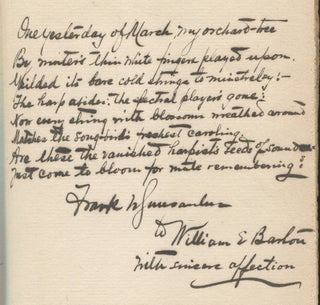 One yesterday of March my orchard-tree
By winter's thin white fingers played upon
Yielded its bare cold strings to minstrelsy:—
The harp abides: the spectral player's gone:
Now every string with blossoms wreathed around
Matches the song-bird's freshest caroling.
Are these the vanished harpist's seeds of sound
Just come to bloom for mute remembering?
Frank W Gunsaulus
to William E Barton
With sincere affection